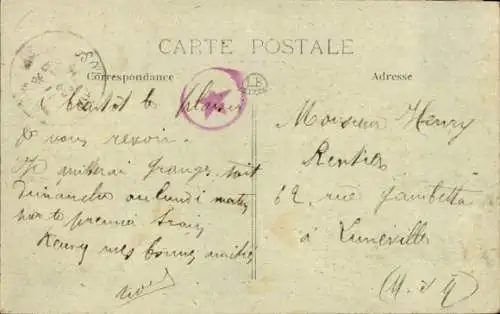 CARTE POSTALE
Correspondance
Adresse
LB
A bientôt le plaisir
de vous revoir.
Je quitterai Granges soit
dimanche ou lundi matin
par le premier train
mes bonnes amitiés
Monsieur Henry
Rentier
62 rue Gambetta
à Lunéville
(M. & M)